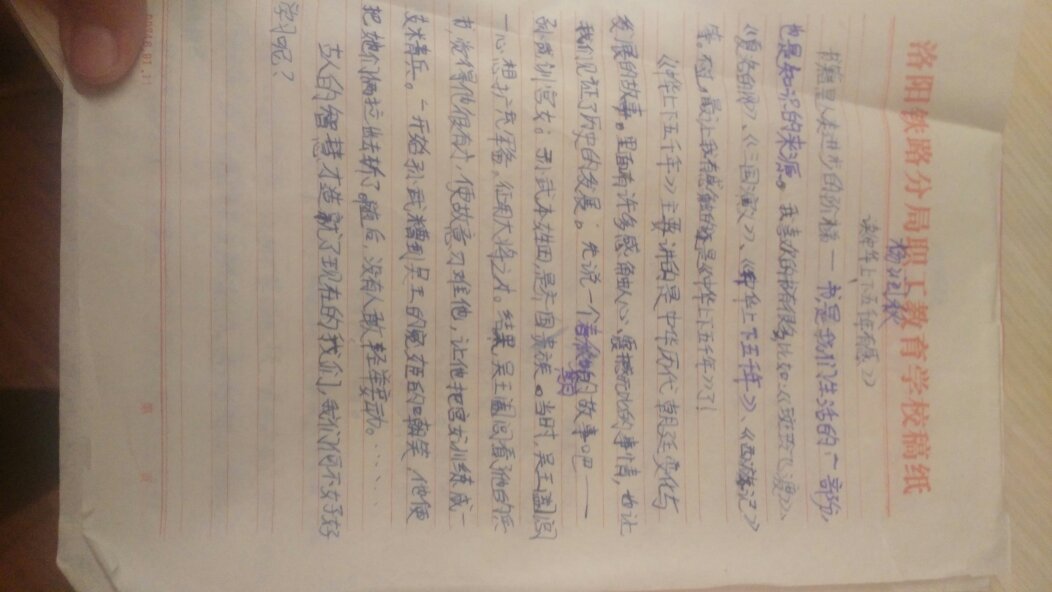 洛阳铁路分局职工教育学校稿纸
读《中华上下五千年》有感
书籍是人类进步的阶梯——书是我们生活的一部分,
也是知识的来源。我喜欢的书有很多比如:《
》、《三国演义》、《中华上下五千年》、《西游记》
等。但,最让我有感触的还是《中华上下五千年》了!
《中华上下五千年》主要讲的是中华历代朝廷变化与
发展的故事。里面有许多感触人心、震撼的事情,也让
我们见证了历史的发展;先说一个的故事吧——
孙武训宫女:孙武本姓田,是齐国贵族。当时,吴王阖闾
一心想扩充军备,征用大将之才。结果,吴王阖闾看了他的兵
书,觉得他很有才,便故意刁难他,让他把宫女训练成一
支精兵。一开始孙武遭到吴王的宠妃的嘲笑,他便
把她们俩拉出去斩了。随后,没有人敢轻举妄动。……
古人的智慧才造就了现在的我们,我们何不好好
学习呢?
第 页